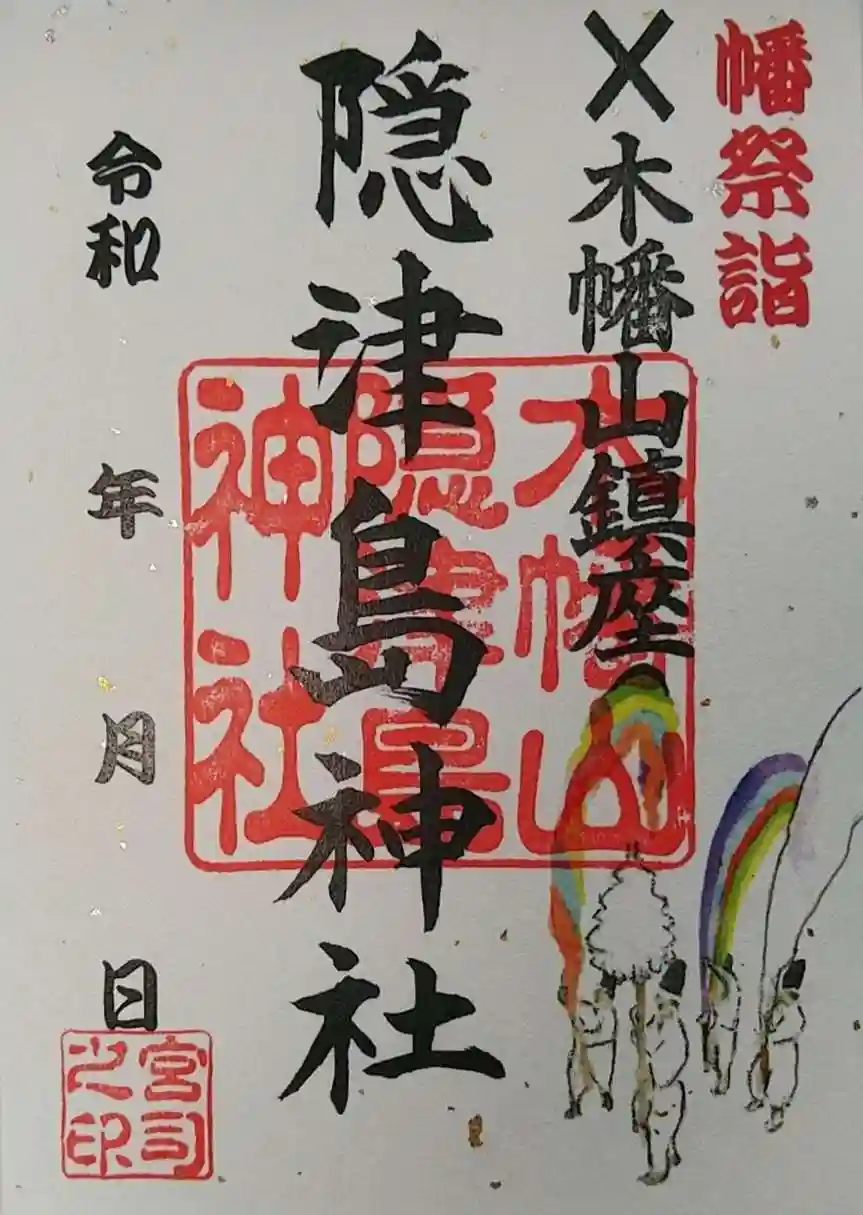 幡祭詣
〤木幡山鎮座
隠津島神社
令和 年 月 日
木幡山
隠津島
神社
宮司
之印